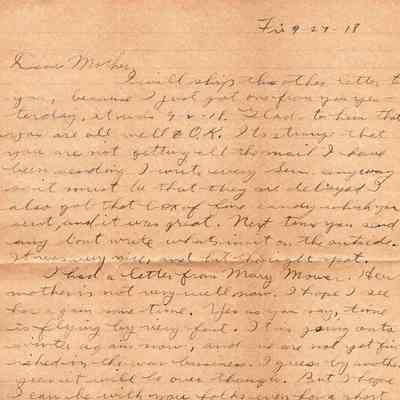 Fri 9-27-18
Dear Mother,
I will ship this other letter to
you, because I just got one from you yes-
terday, it was 9-2-18. Glad to hear that
you are all well & O.K. It is strange that
you are not getting all the mail I have
been sending. I write every Sun. anyway
so it must be that they are delayed. I
also got that box of fine candy which you
sent, and it was great. Next time you send
any don't write whats in it on the outside.
It was very nice, and hit the right spot.
I had a letter from Mary Mowr. Her
mother is not very well now. I hope I see
her again some time. Yes as you say, time
is flying by very fast. It is going onto
winter again now, and we are not yet fin-
ished in the war business. I guess by another
year it will be over though. But I hope
I can be with you folks even for a short